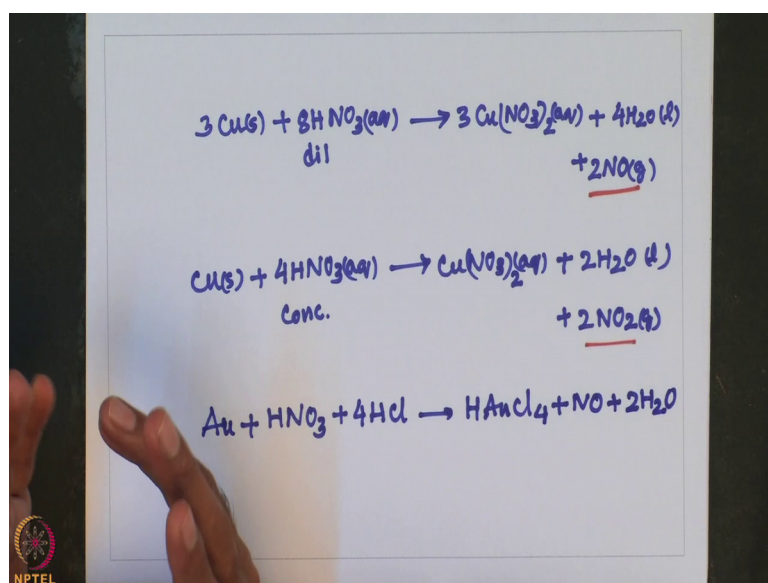 3 Cu(s) + 8HNO3(aq) → 3 Cu(NO3)2(aq) + 4H2O (l)
dil
+ 2NO(g)
Cu(s) + 4HNO3(aq) → Cu(NO3)2(aq) + 2H2O (l)
Conc.
+ 2NO2(g)
Au + HNO3 + 4HCl → HAuCl4 + NO + 2H2O
NPTEL